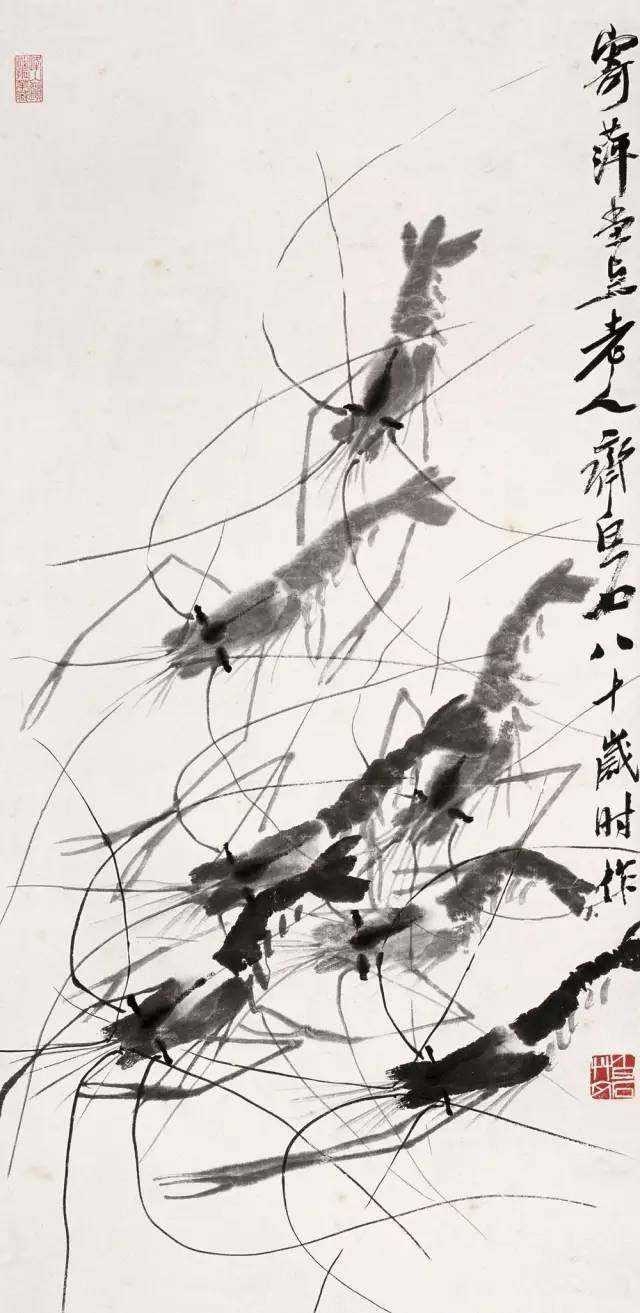 寄萍堂上老人齐白石八十岁时作